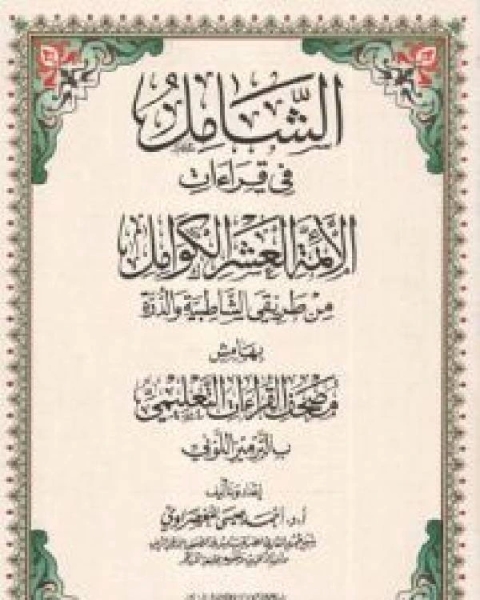 الشَّامِلُ
فِي قِرَاءَاتِ
الأَئِمَّةِ العَشْرِ الكَوَامِلِ
مِنْ طَرِيقَي الشَّاطِبِيَّةِ وَالدُّرَّةِ
بِهَامِشِ
مُصْحَفِ القِرَاءَاتِ التَّعْلِيمِيِّ
بِالتَّرْمِيزِ اللَّوْنِيِّ
إعداد وتأليف
أ.د. أحمد عيسى المعصراوي